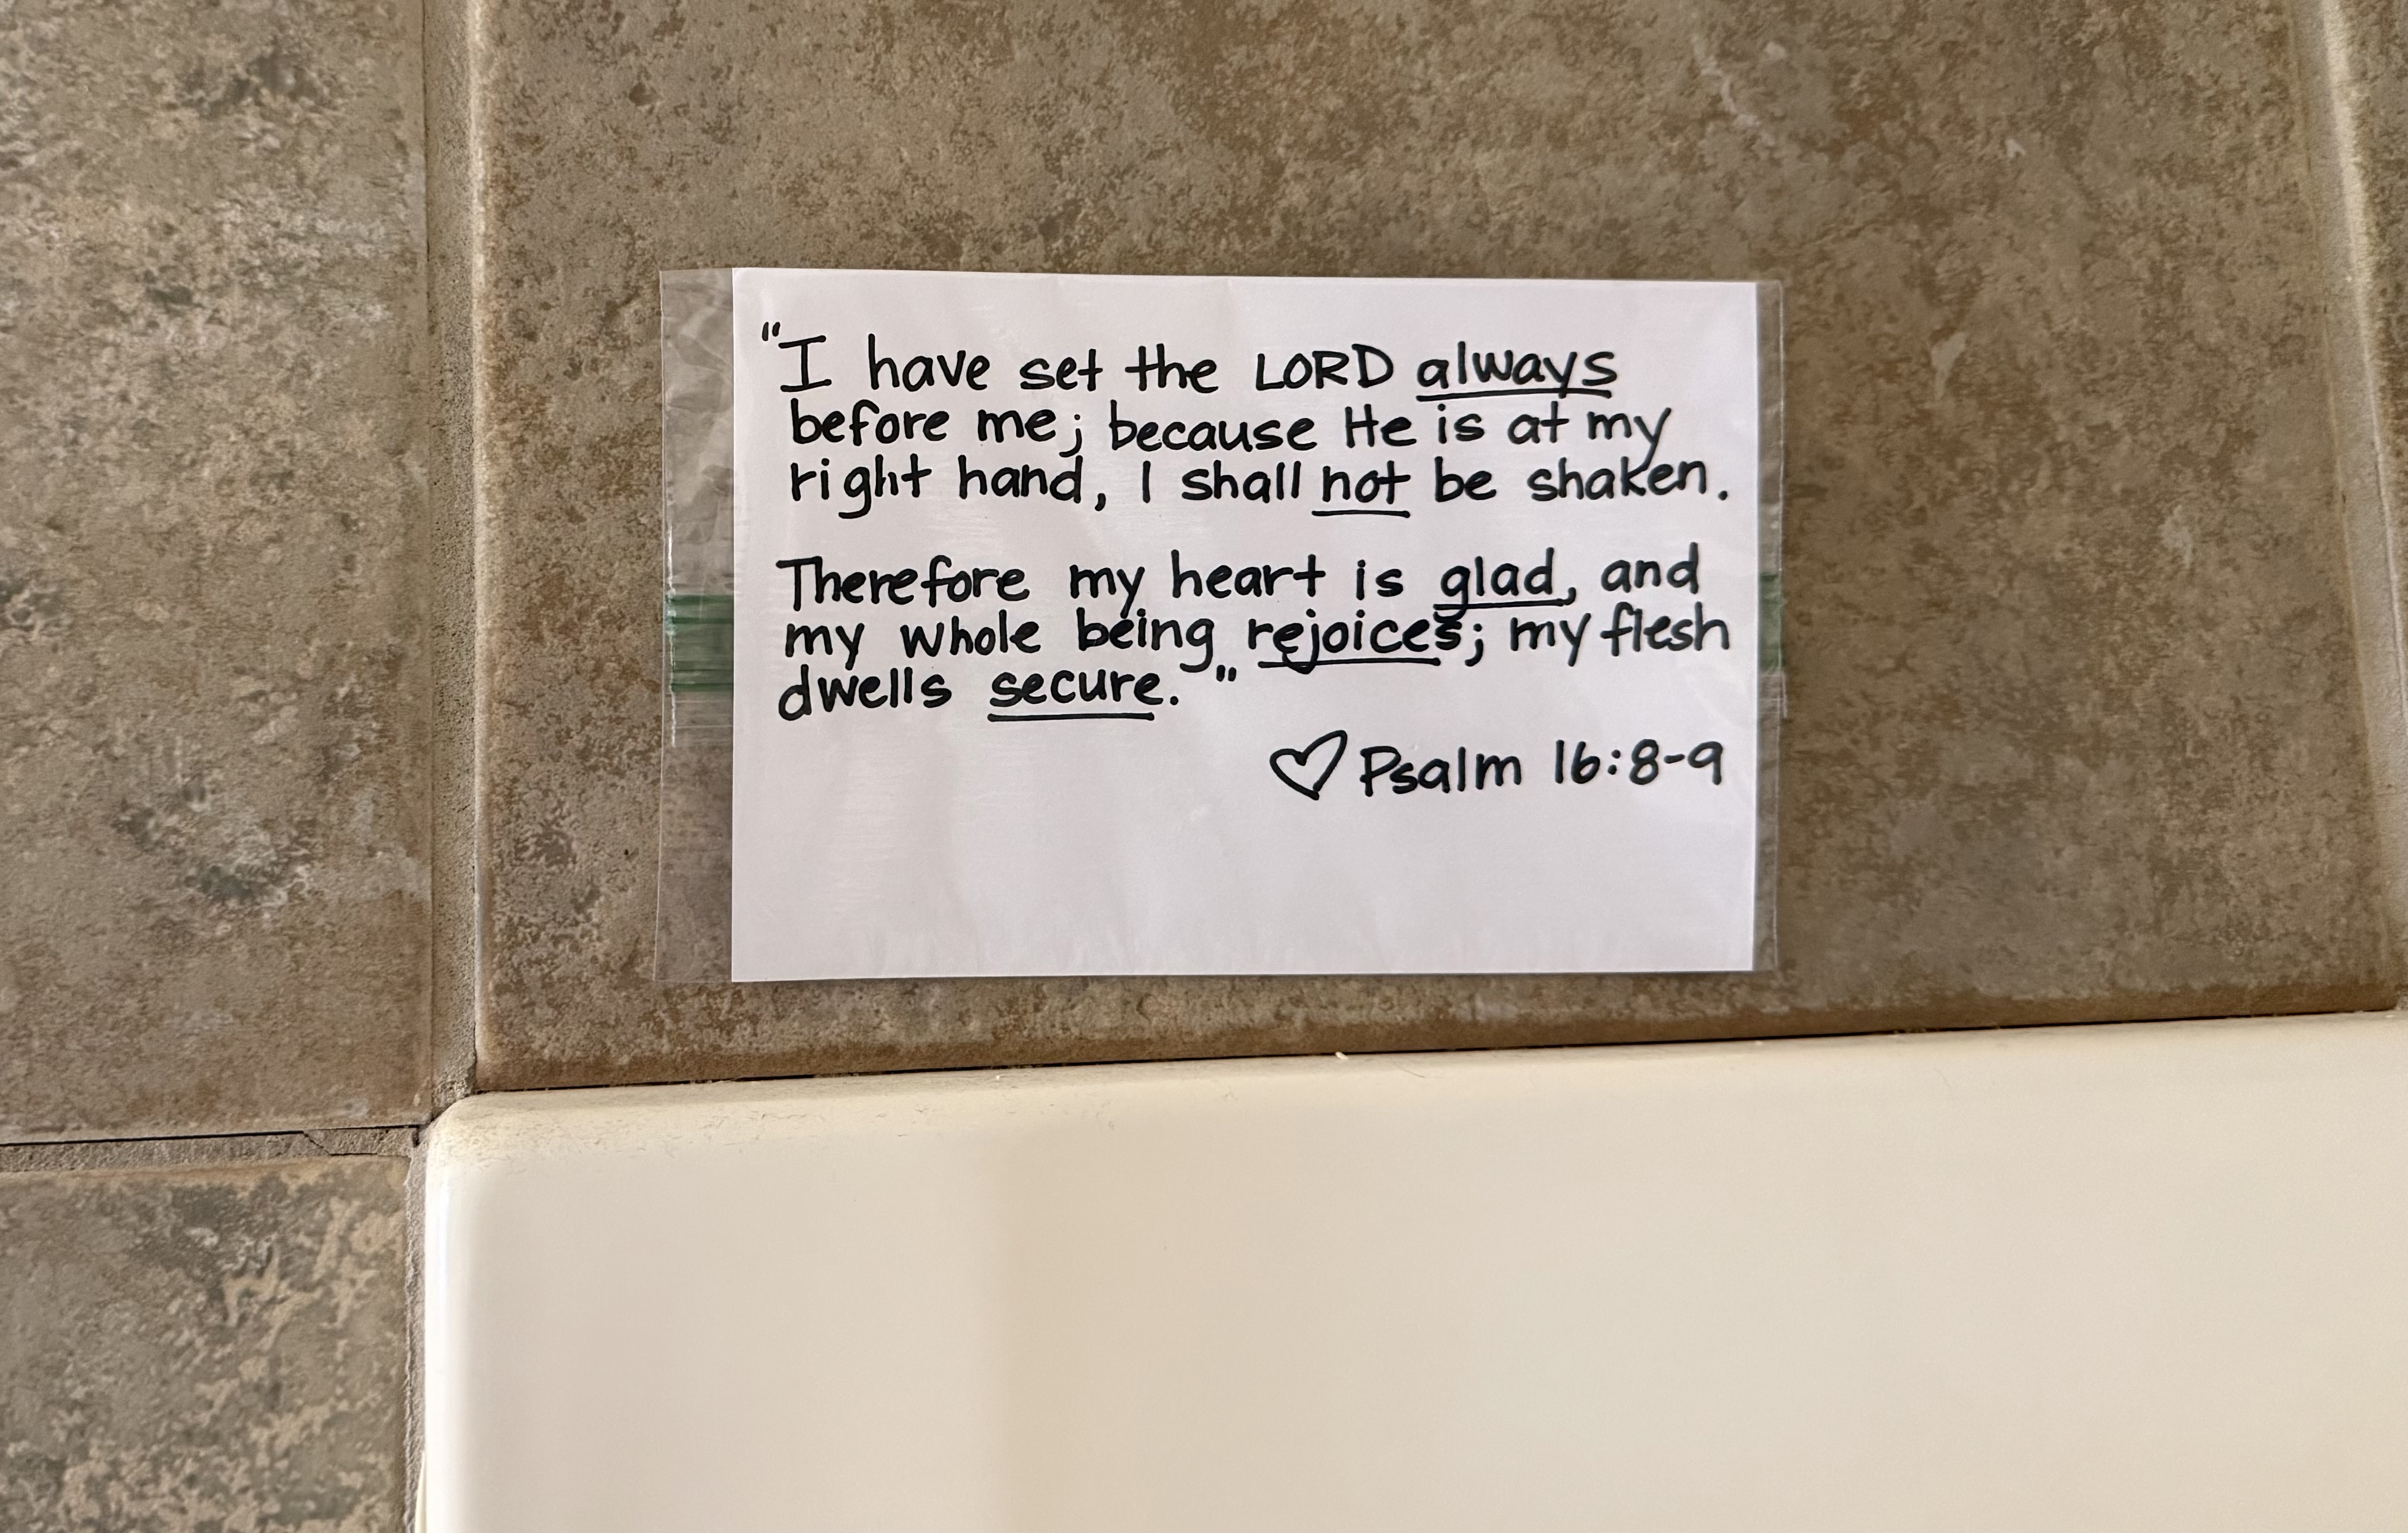 "I have set the LORD always
before me; because He is at my
right hand, I shall not be shaken.
Therefore my heart is glad, and
my whole being rejoices; my flesh
dwells secure."
♡ Psalm 16:8-9